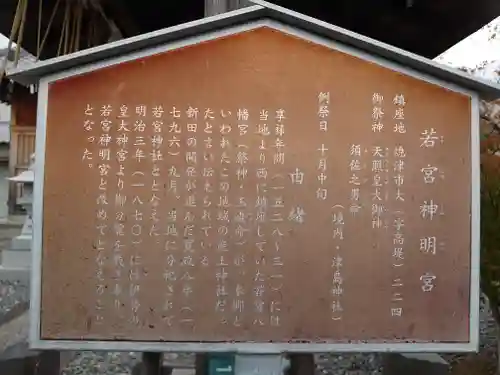 若宮神明宮
鎮座地 焼津市大字高堤)二二四
御祭神 天照皇大御神
須佐之男命
(境内・津島神社)
例祭日 十月中旬
由緒
享禄年間(一五二八~三一)には
当地より西に鎮座していた若宮八
幡宮(祭神・玉依命)が、本郷と
いわれたこの地域の産土神社だっ
たと言い伝えられている
新田の開発が進んだ寛政八年(一
七九六)九月、当地に分祀されて
若宮神社ととなえた。
明治三年(一八七〇)には伊勢の
皇大神宮より御分霊を戴きまつり
若宮神明宮と改めてとなえること
となった。